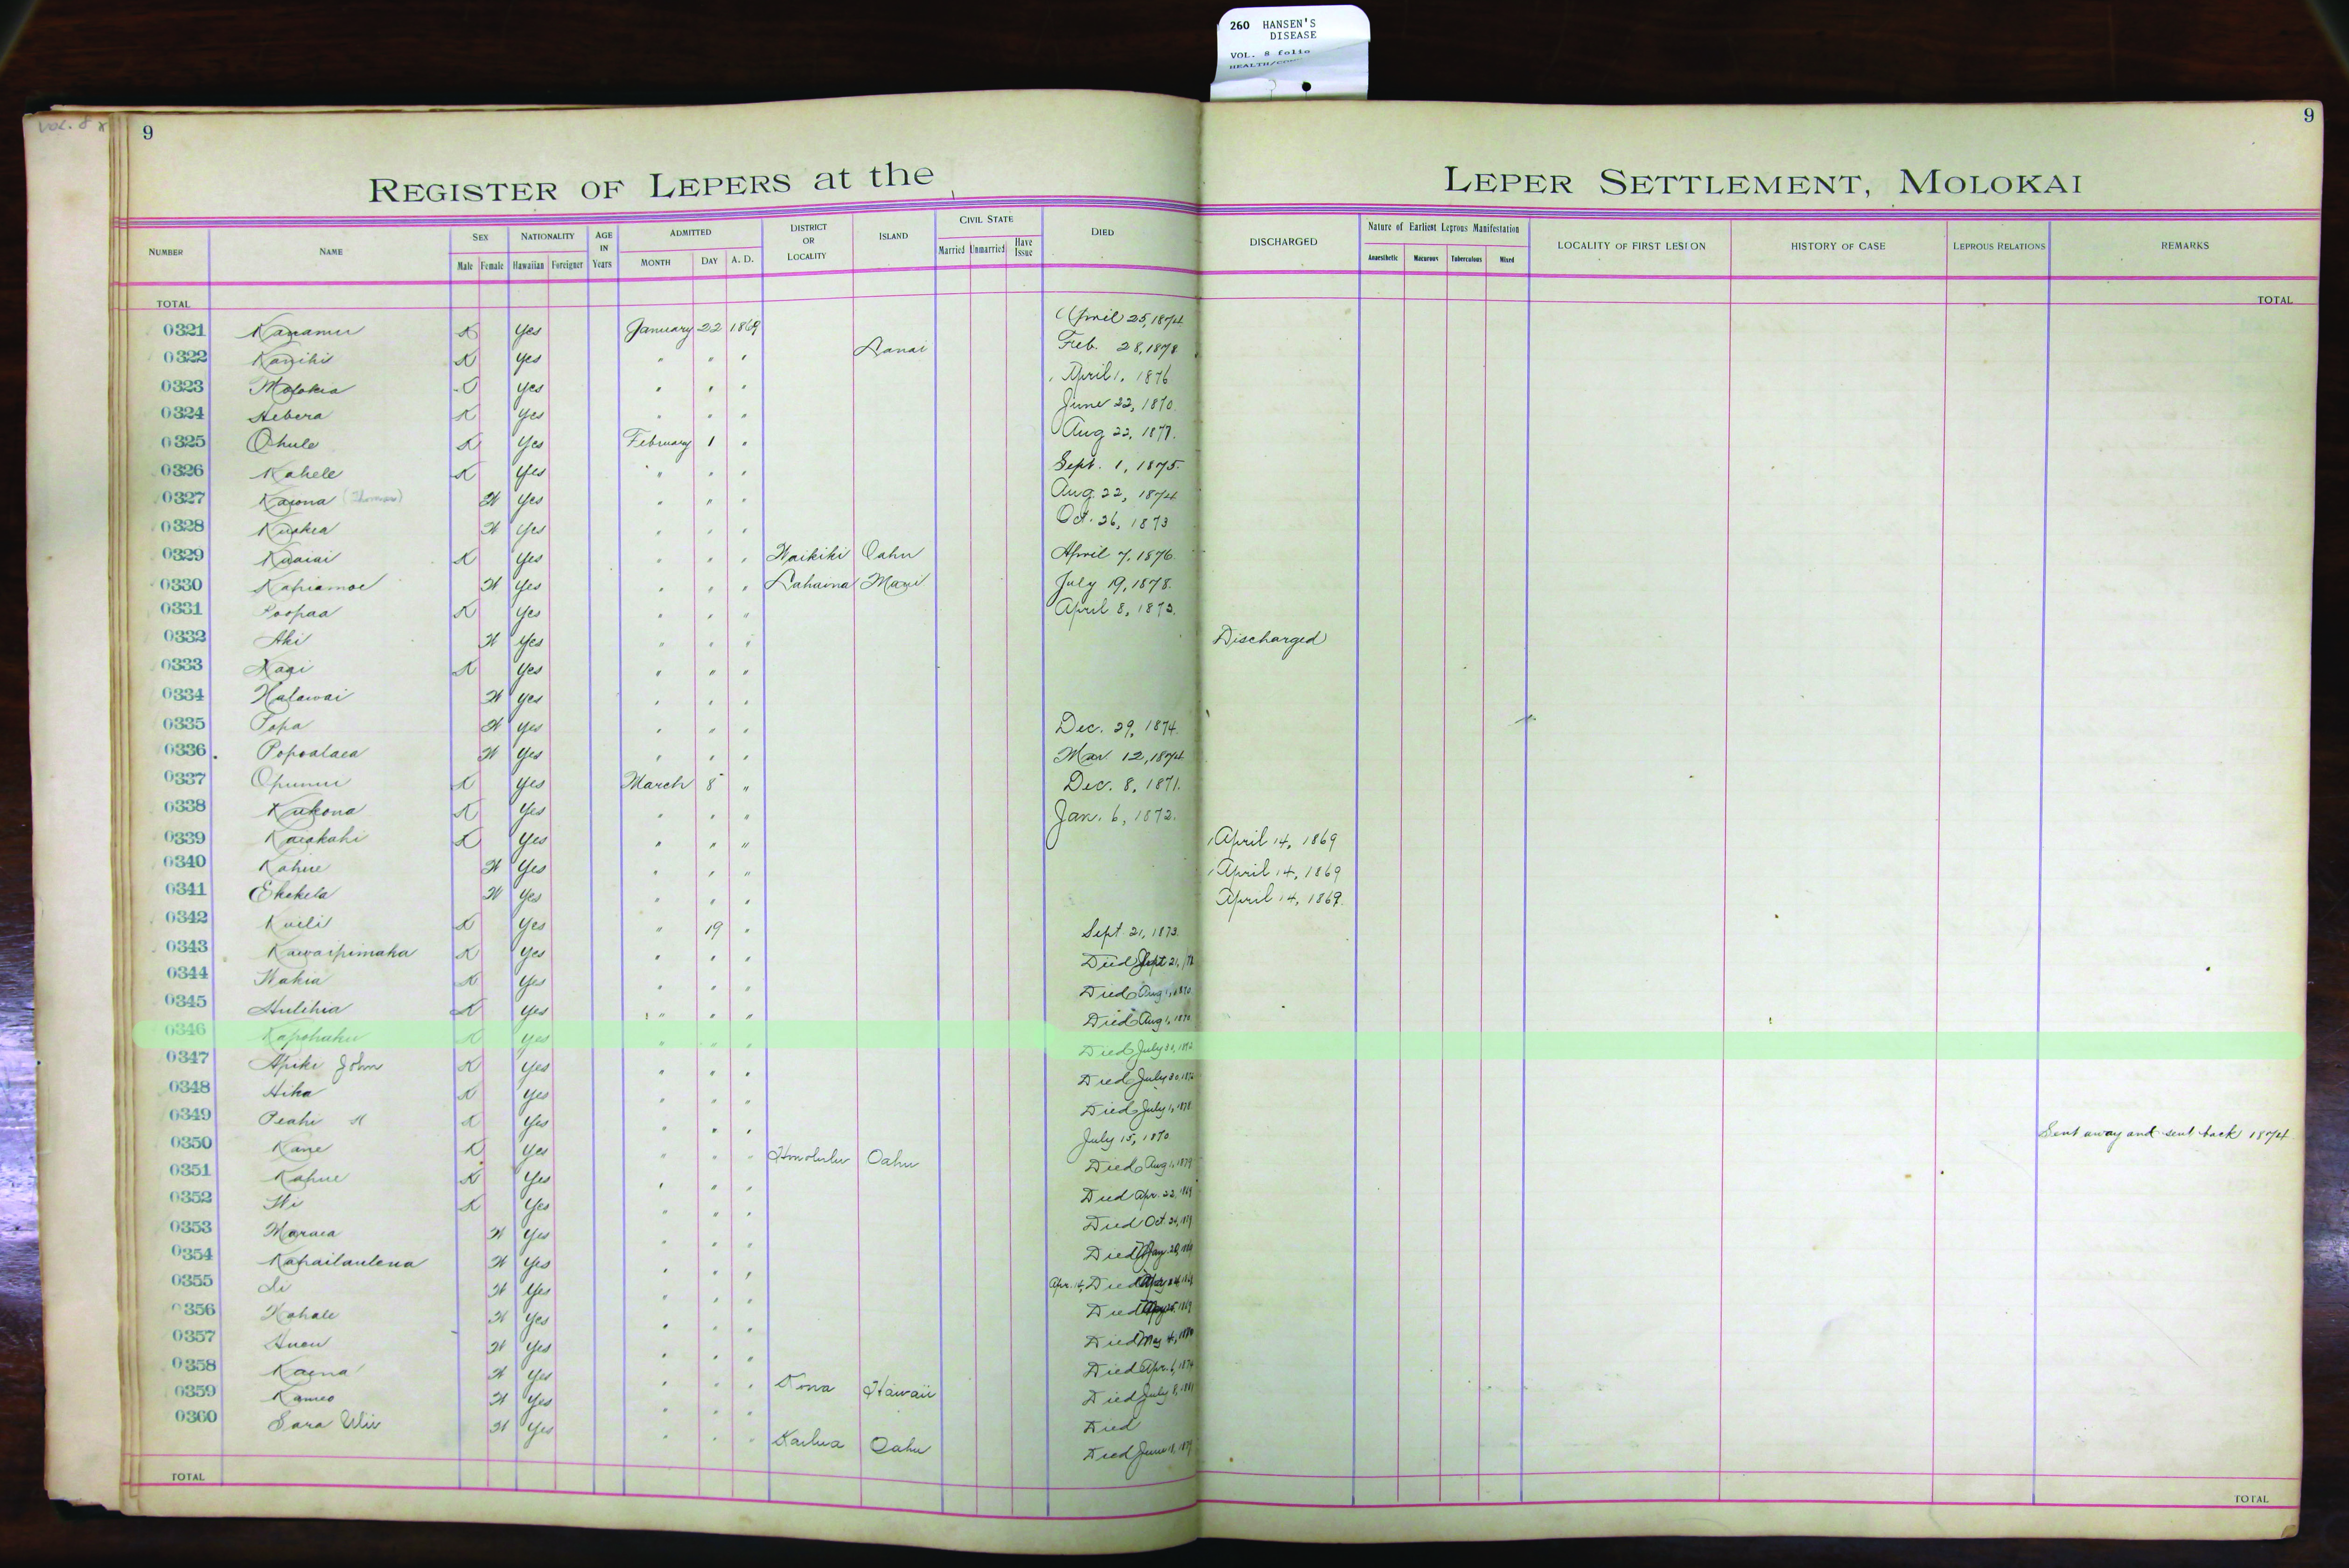 260 HANSEN'S
DISEASE
VOL. 8 folio
VOL. 8
9
9
REGISTER OF LEPERS at the LEPER SETTLEMENT, MOLOKAI
NUMBER NAME SEX NATIONALITY AGE IN Years ADMITTED DISTRICT OR LOCALITY ISLAND CIVIL STATE DIED DISCHARGED Nature of Earliest Leprous Manifestation LOCALITY OF FIRST LESION HISTORY OF CASE LEPROUS RELATIONS REMARKS
Male Female Hawaiian Foreigner MONTH DAY A. D. Married Unmarried Have Issue Anaesthetic Macurous Tuberculous Mixed
TOTAL TOTAL
0321 Kanamu K Yes January 22 1869 April 25, 1874
0322 Kanihi K Yes " " " Lanai Feb. 28, 1878
0323 Molokia Yes " " " April 1, 1876
0324 Hebera K Yes " " " June 22, 1870
0325 Ohule K Yes February 1 " Aug 22, 1877.
0326 Kahele K Yes " " " Sept. 1, 1875.
0327 Kaiona (Thomas) W Yes " " " Aug. 22, 1874
0328 Kuakea W Yes " " " Oct. 26, 1873
0329 Kuaiai K Yes " " " Waikiki Oahu April 7, 1876
0330 Kahiamoe W Yes " " " Lahaina Maui July 19, 1878.
0331 Poopaa K Yes " " " April 8, 1873.
0332 Aki W Yes " " " Discharged
0333 Kaai K Yes " " "
0334 Halawai W Yes " " "
0335 Popa W Yes " " " Dec. 29, 1874
0336 Popoalaea W Yes " " " Mar 12, 1874
0337 Opunui K Yes March 8 " Dec. 8, 1871.
0338 Kukona K Yes " " " Jan. 6, 1872.
0339 Kaiakahi K Yes " " " April 14, 1869
0340 Kahue W Yes " " " April 14, 1869
0341 Ekekela W Yes " " " April 14, 1869
0342 Kuili K Yes " 19 " Sept. 21, 1873
0343 Kawaipimaka K Yes " " " Died Sept 21,
0344 Wahia K Yes " " " Died Aug 1, 1870
0345 Hulihia K Yes " " " Died Aug 1, 1870
0346 Kapohaku K Yes " " " Died July 30, 1872
0347 Apiki John K Yes " " " Died July 30, 1872
0348 Hika K Yes " " " Died July 1, 1878
0349 Peahi K Yes " " " July 15, 1870 Sent away and sent back 1874
0350 Kane K Yes " " " Honolulu Oahu Died Aug 1, 1879
0351 Kahue K Yes " " " Died Apr. 22, 1869
0352 Wi K Yes " " " Died Oct. 24, 1869
0353 Maraea W Yes " " " Died May 20, 1869
0354 Kahailaulena W Yes " " " Apr. 14, Died
0355 Li W Yes " " " Died
0356 Kahale W Yes " " " Died May 4, 1880
0357 Anou W Yes " " " Died Apr. 6, 1874
0358 Kaena W Yes " " " Kona Hawaii Died July 8, 1881
0359 Kameo W Yes " " " Died
0360 Sara Ulii W Yes " " " Kailua Oahu Died June 18, 1879
TOTAL TOTAL